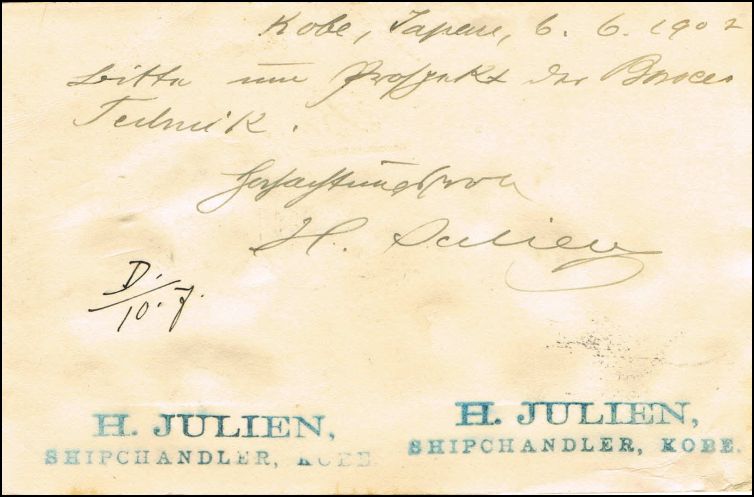 Kobe, Japan, 6. 6. 1902
Bitte um Prospekt der
Technik.
Hochachtungsvoll
H. Julien
D. / 10. 7.
H. JULIEN,
SHIPCHANDLER, KOBE.
H. JULIEN,
SHIPCHANDLER, KOBE.